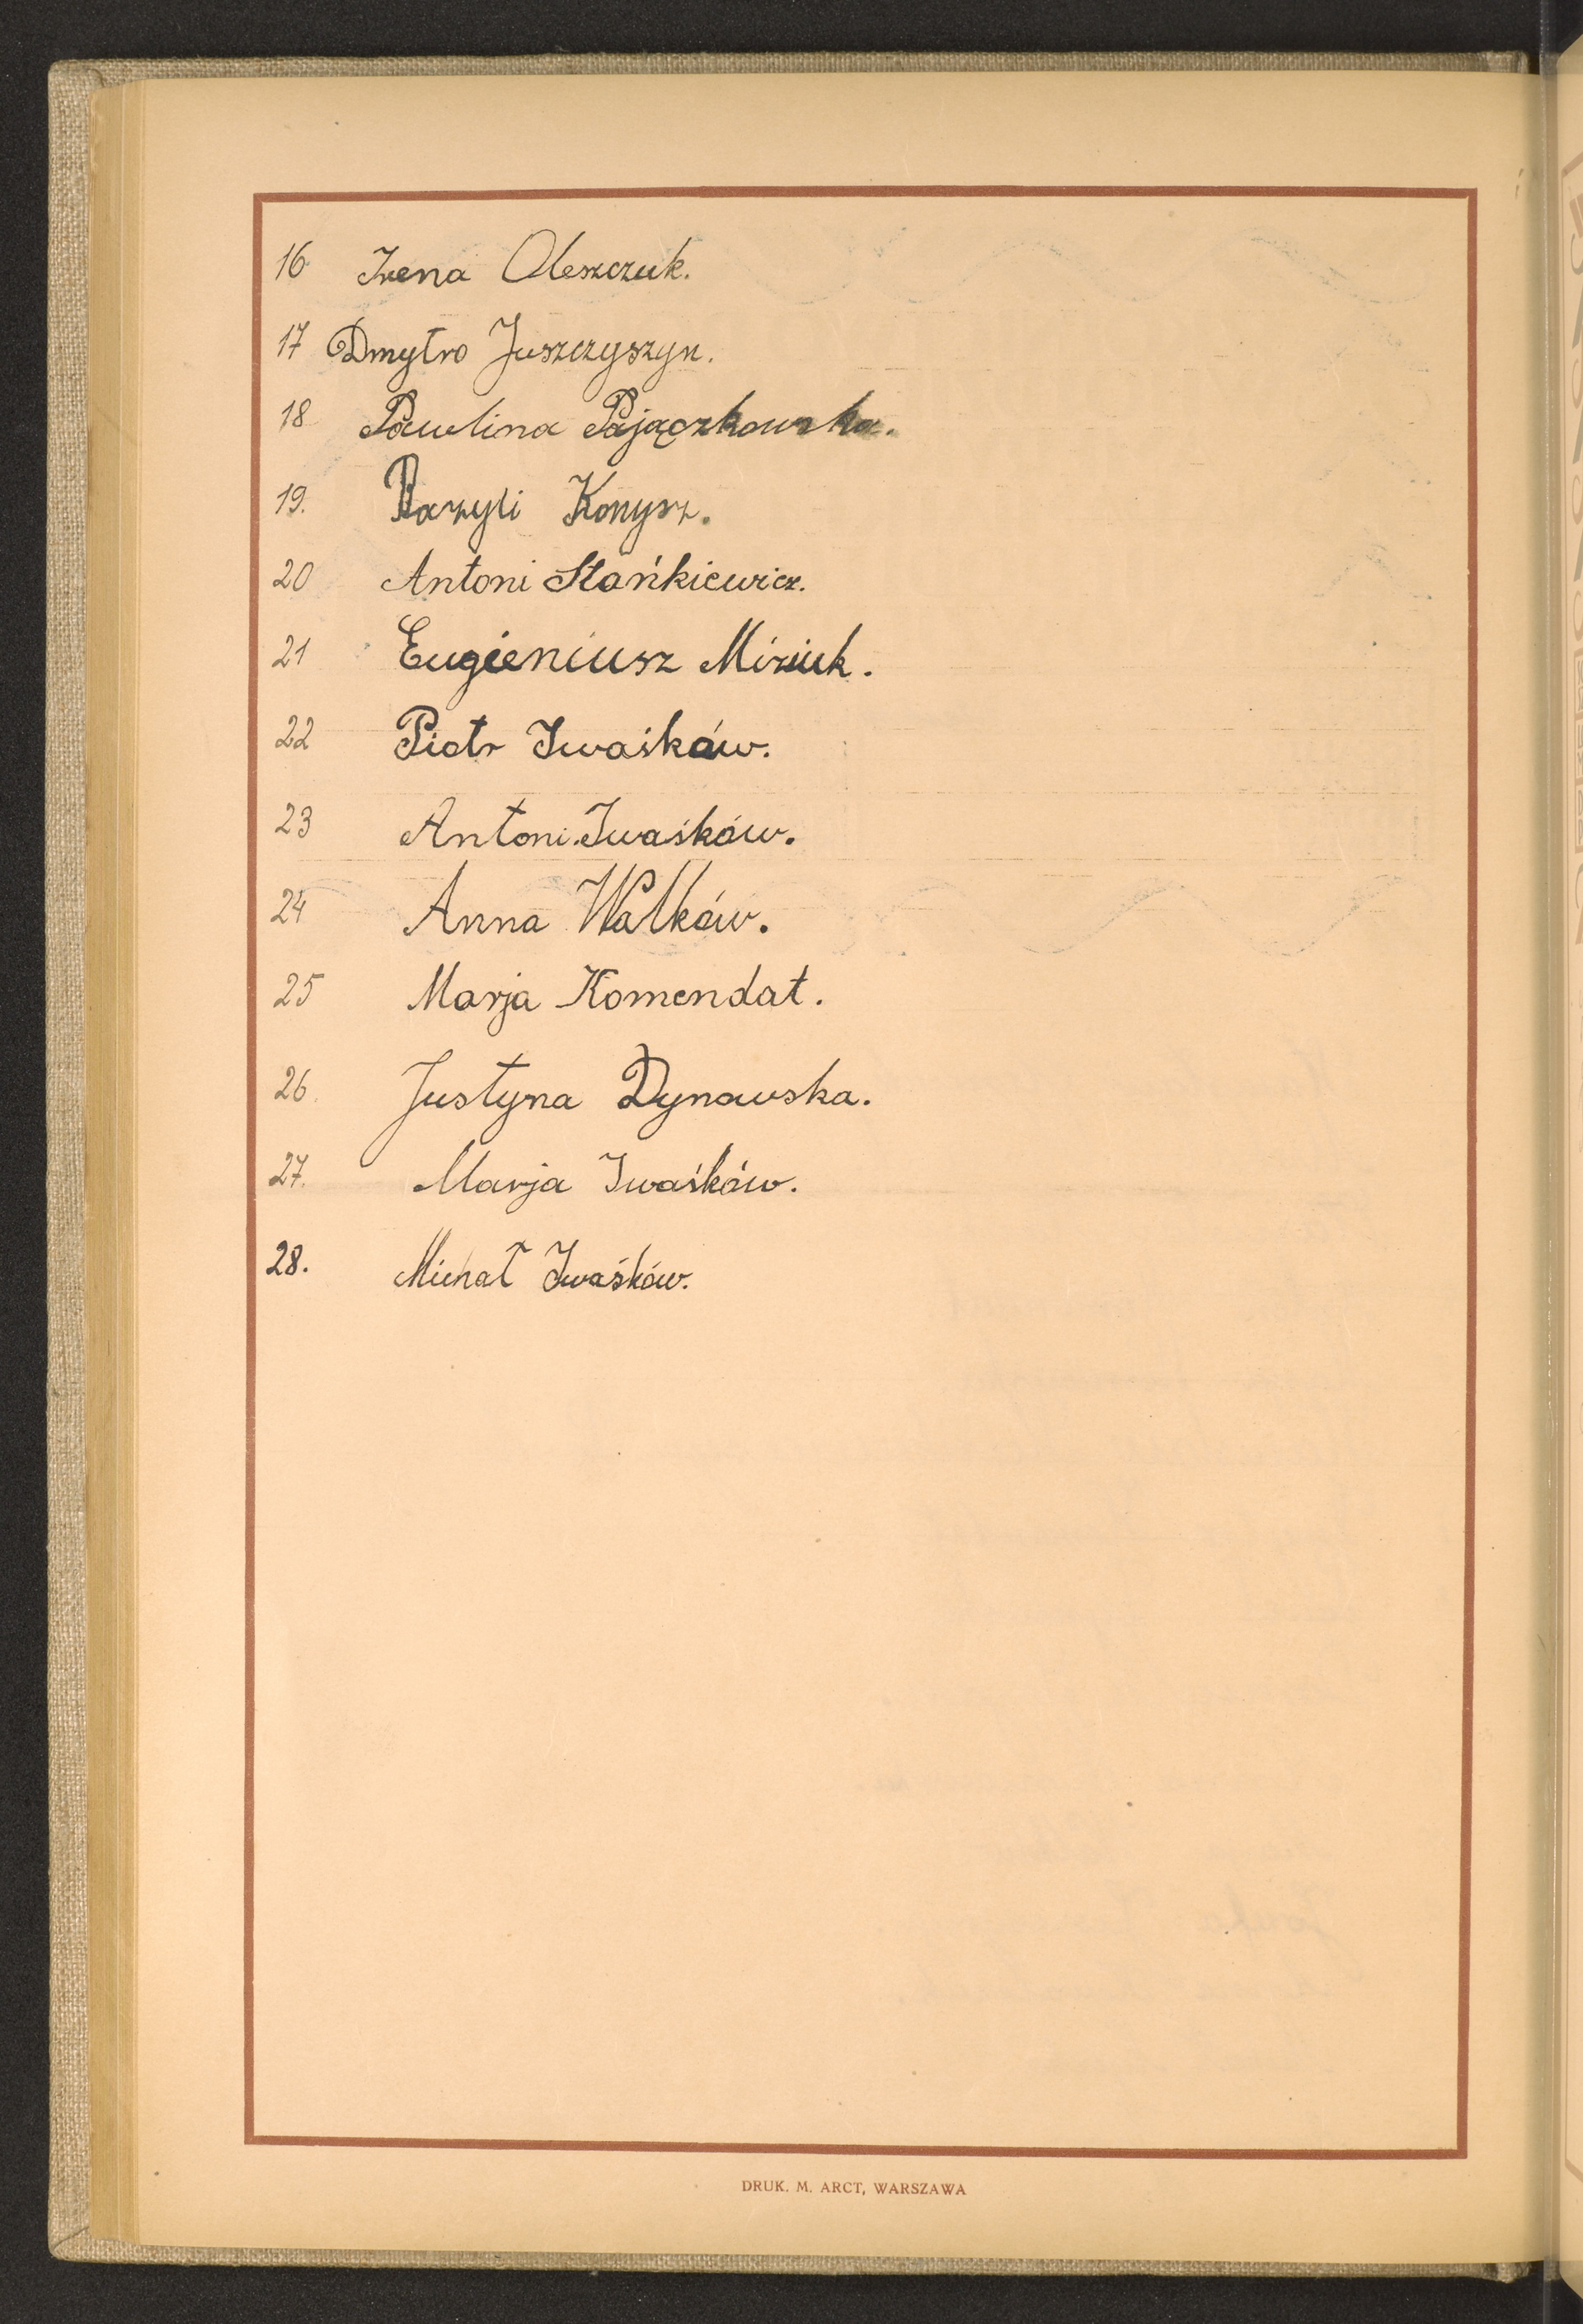 16 Irena Oleszczuk.
17 Dmytro Juszczyszyn.
18 Pawlina Pajączkowska.
19. Bazyli Konysz.
20 Antoni Stańkiewicz.
21 Eugieniusz Miziuk.
22 Piotr Iwaśków.
23 Antoni Iwaśków.
24 Anna Wałków.
25 Marja Komendat.
26. Justyna Dynowska.
27. Marja Iwaśków.
28. Michał Iwaśków.
DRUK. M. ARCT, WARSZAWA